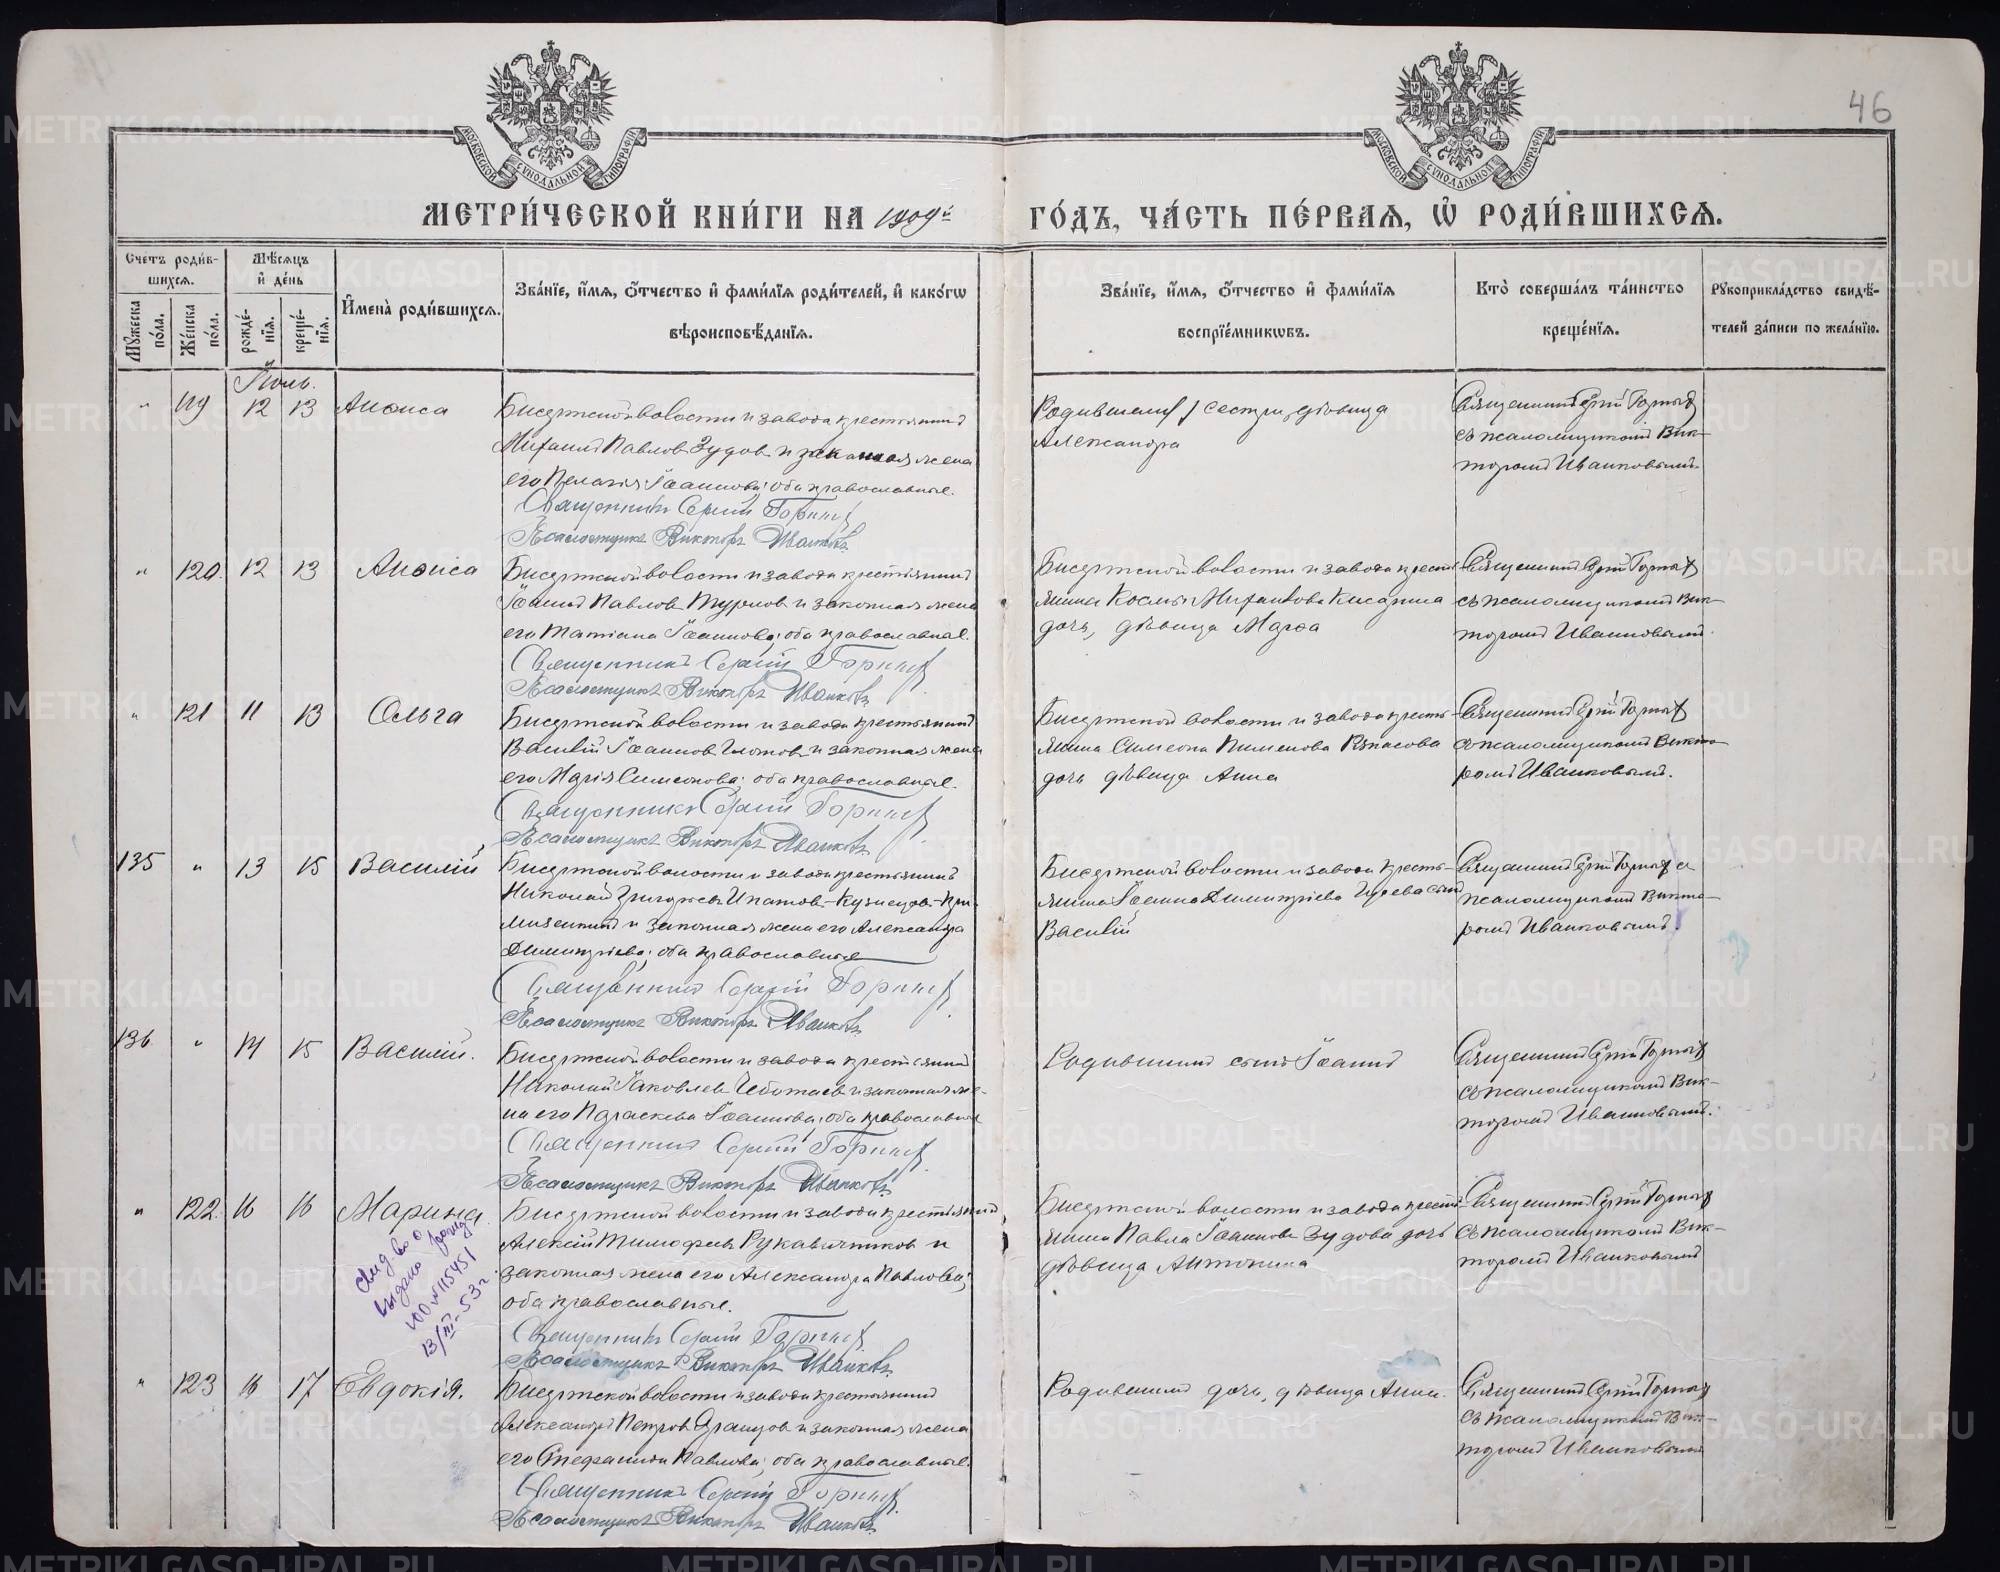 46
МОСКОВСКОЙ СѴНОДАЛЬНОЙ ТИПОГРАФІИ
МОСКОВСКОЙ СѴНОДАЛЬНОЙ ТИПОГРАФІИ
МЕТРИ́ЧЕСКОЙ КНИ́ГИ НА 1909й
ГО́ДЪ, ЧА́СТЬ ПЕ́РВАѦ, Ѽ РОДИ́ВШИХСѦ.
Счетъ роди́в-
шихсѧ.
Мꙋжеска по́ла.
Же́нска по́ла.
Мѣ́сѧцъ
и҆ де́нь
рожде́-
нїѧ.
креще́-
нїѧ.
И҆мена̀ роди́вшихсѧ.
Зва́нїе, и҆́мѧ, ѻ҆́тчество и҆ фами́лїѧ роди́телей, и҆ како́гѡ
вѣроисповѣ́данїѧ.
Зва́нїе, и҆́мѧ, ѻ҆́тчество и҆ фами́лїѧ
воспрїе́мникѡвъ.
Кто̀ соверша́лъ та́инство
креще́нїѧ.
Рꙋкоприкла́дство свидѣ́-
телей за́писи по жела́нїю.
Іюль.
" 119 12 13 Анѳиса
Бисертской волости и завода крестьянинъ
Михаилъ Павловъ Зудовъ и законная жена
его Пелагія Іоаннова; оба православные.
Священникъ Сергій Горныхъ
Псаломщикъ Викторъ Иванковъ
Родившейся сестра, дѣвица
Александра
Священникъ Сергій Горныхъ
съ псаломщикомъ Вик-
торомъ Иванковымъ.
" 120. 12 13 Анѳиса
Бисертской волости и завода крестьянинъ
Іоаннъ Павловъ Турковъ и законная жена
его Татіана Іоаннова; оба православные.
Священникъ Сергій Горныхъ
Псаломщикъ Викторъ Иванковъ
Бисертской волости и завода кресть-
янина Космы Михаилова Кисарина
дочь, дѣвица Марѳа
Священникъ Сергій Горныхъ
съ псаломщикомъ Вик-
торомъ Иванковымъ.
" 121 11 13 Ольга
Бисертской волости и завода крестьянинъ
Василій Іоанновъ и законная жена
его Марія Симеонова; оба православные.
Священникъ Сергій Горныхъ
Псаломщикъ Викторъ Иванковъ
Бисертской волости и завода кресть-
янина Симеона Пименова
дочь дѣвица Анна
Священникъ Сергій Горныхъ
съ псаломщикомъ Викто-
ромъ Иванковымъ.
135 " 13 15 Василій
Бисертской волости и завода крестьянинъ
Николай Григорьевъ Ипатовъ-Кузнецовъ-При-
мизенкинъ и законная жена его Александра
Димитріева; оба православные
Священникъ Сергій Горныхъ
Псаломщикъ Викторъ Иванковъ
Бисертской волости и завода кресть-
янина Іоанна Димитріева сынъ
Василій
Священникъ Сергій Горныхъ съ
псаломщикомъ Викто-
ромъ Иванковымъ.
136 " 14 15 Василій.
Бисертской волости и завода крестьянинъ
Николай Іаковлевъ Чеботаевъ и законная же-
на его Параскева Іоаннова; оба православные
Священникъ Сергій Горныхъ
Псаломщикъ Викторъ Иванковъ
Родившаго сынъ Іоаннъ
Священникъ Сергій Горныхъ
съ псаломщикомъ Вик-
торомъ Иванковымъ.
" 122. 16 16 Марина.
Свид во о
выдано
ЮО № 115451
13/III-53 г.
Бисертской волости и завода крестьянинъ
Алексій Тимофеевъ Рукавичниковъ и
законная жена его Александра Павлова;
оба православные.
Священникъ Сергій Горныхъ
Псаломщикъ Викторъ Иванковъ
Бисертской волости и завода кресть-
янина Павла Іоаннова Зудова дочь
дѣвица Антонина
Священникъ Сергій Горныхъ
съ псаломщикомъ Вик-
торомъ Иванковымъ
" 123 16 17 Евдокія.
Бисертской волости и завода крестьянинъ
Александръ Петровъ и законная жена
его Стефанида Павлова; оба православные.
Священникъ Сергій Горныхъ
Псаломщикъ Викторъ Иванковъ
дочь, дѣвица Анна.
Священникъ Сергій Горныхъ
съ псаломщикомъ Вик-
торомъ Иванковымъ
METRIKI.GASO-URAL.RU